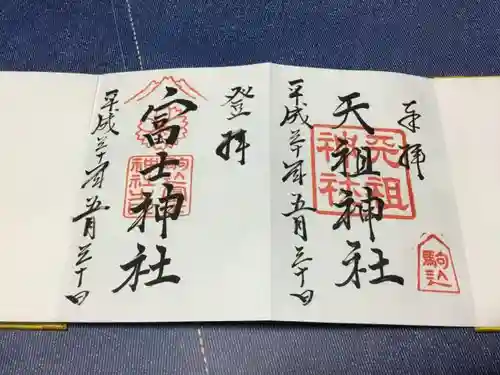 奉拝
天祖神社
天祖神社
駒込
平成三十年五月三十日
登拝
富士神社
平成三十年五月三十日